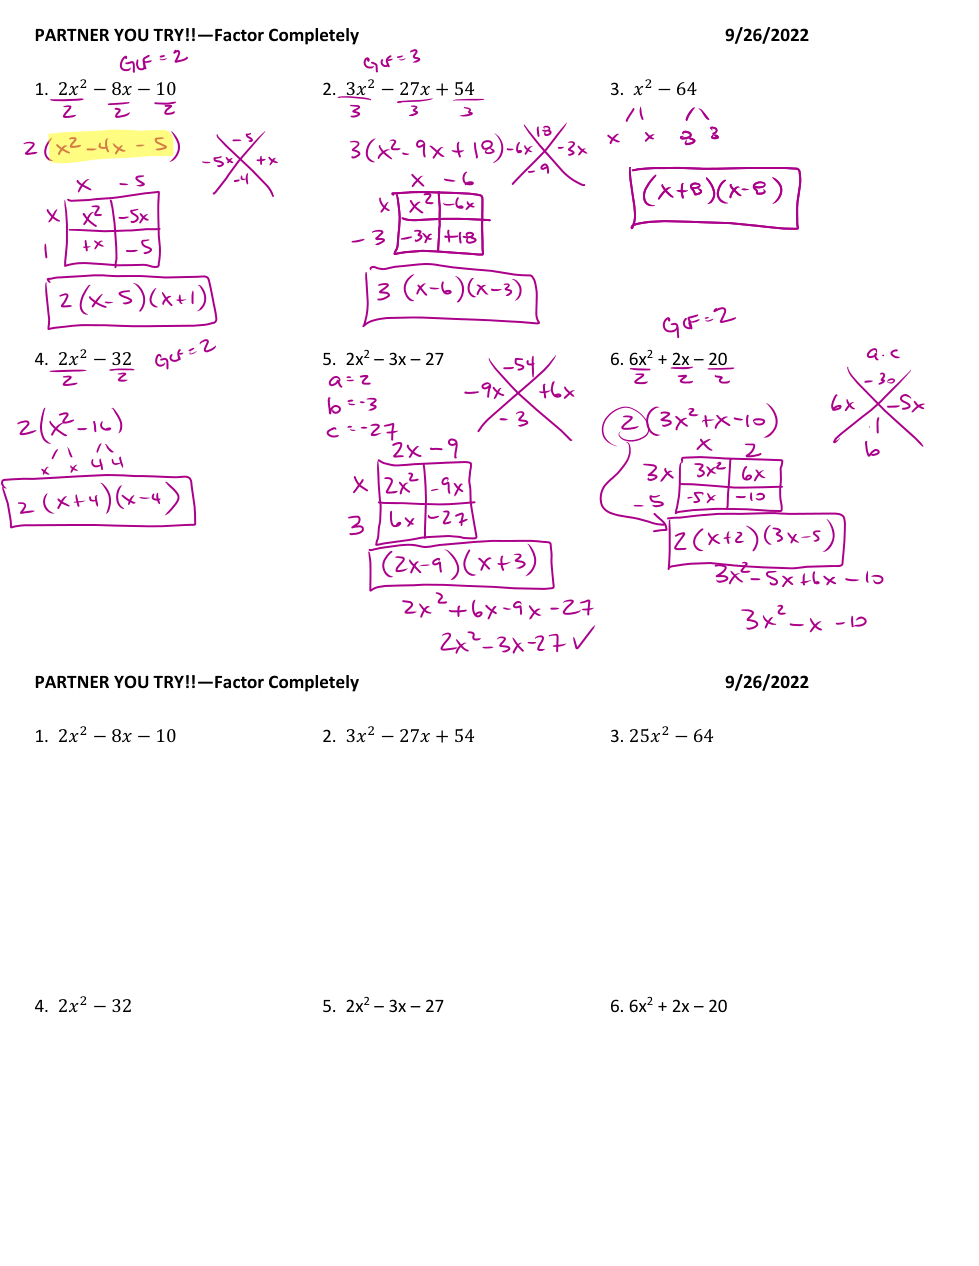 PARTNER YOU TRY!!—Factor Completely 9/26/2022
GCF = 2
GCF = 3
1. 2x² − 8x − 10
2 2 2
2 (x² - 4x - 5)
-5
-5x +x
-4
x -5
x x² -5x
1 +x -5
2 (x-5)(x+1)
2. 3x² − 27x + 54
3 3 3
3(x² - 9x + 18)
18
-6x -3x
-9
x -6
x x² -6x
-3 -3x +18
3 (x-6)(x-3)
3. x² − 64
x x 8 8
(x+8)(x-8)
4. 2x² − 32 GCF = 2
2 2
2(x²-16)
x x 4 4
2 (x+4)(x-4)
5. 2x² – 3x – 27
a = 2
b = -3
c = -27
-54
-9x +6x
-3
2x -9
x 2x² -9x
3 6x -27
(2x-9)(x+3)
2x² + 6x - 9x - 27
2x² - 3x - 27 ✓
GCF = 2
6. 6x² + 2x – 20
2 2 2
a.c
-30
6x -5x
1
b
2 (3x² + x - 10)
x 2
3x 3x² 6x
-5 -5x -10
2 (x+2)(3x-5)
3x² - 5x + 6x - 10
3x² - x - 10
PARTNER YOU TRY!!—Factor Completely 9/26/2022
1. 2x² − 8x − 10 2. 3x² − 27x + 54 3. 25x² − 64
4. 2x² − 32 5. 2x² – 3x – 27 6. 6x² + 2x – 20